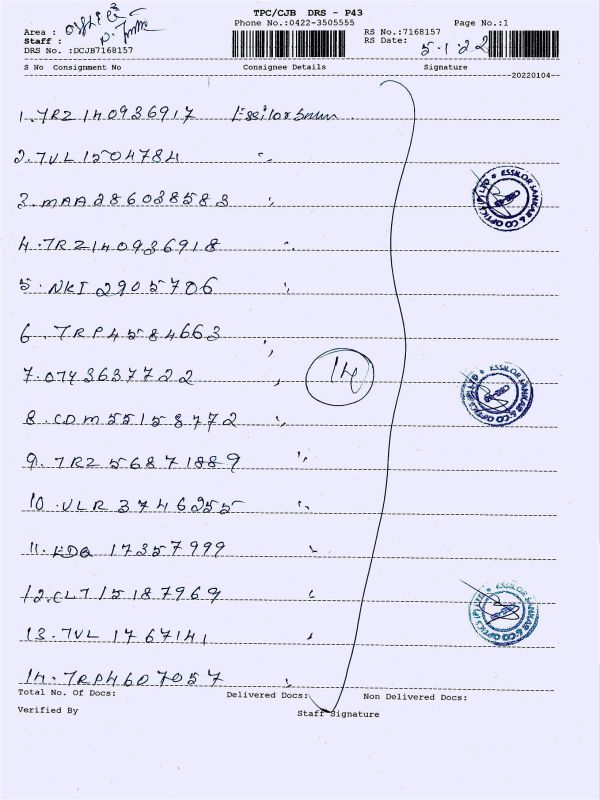 TPC/CJB DRS - P43
Phone No.:0422-3505555
Page No.:1
Area :
Staff :
DRS No. :DCJB7168157
RS No.:7168157
RS Date: 5.1.22
S No Consignment No Consignee Details Signature
20220104
1. TRZ 140936917 Essilor
2. TVL 1504784 "
3. MAA 286038583 "
4. TRZ 140936918 "
5. NKI 2905706 "
6. TRP 4584663 "
7. 0743637722 "
8. CDM 55158772 "
9. TRZ 56871889 "
10. VLR 3746255 "
11. EDQ 17357999 "
12. CLT 15187969 "
13. TVL 1767141 "
14. TRP 4607057 "
14
ESSILOR SANKAR & CO OPTICS (P) LTD
ESSILOR SANKAR & CO OPTICS (P) LTD
ESSILOR SANKAR & CO OPTICS (P) LTD
Total No. Of Docs: Delivered Docs: Non Delivered Docs:
Verified By Staff Signature